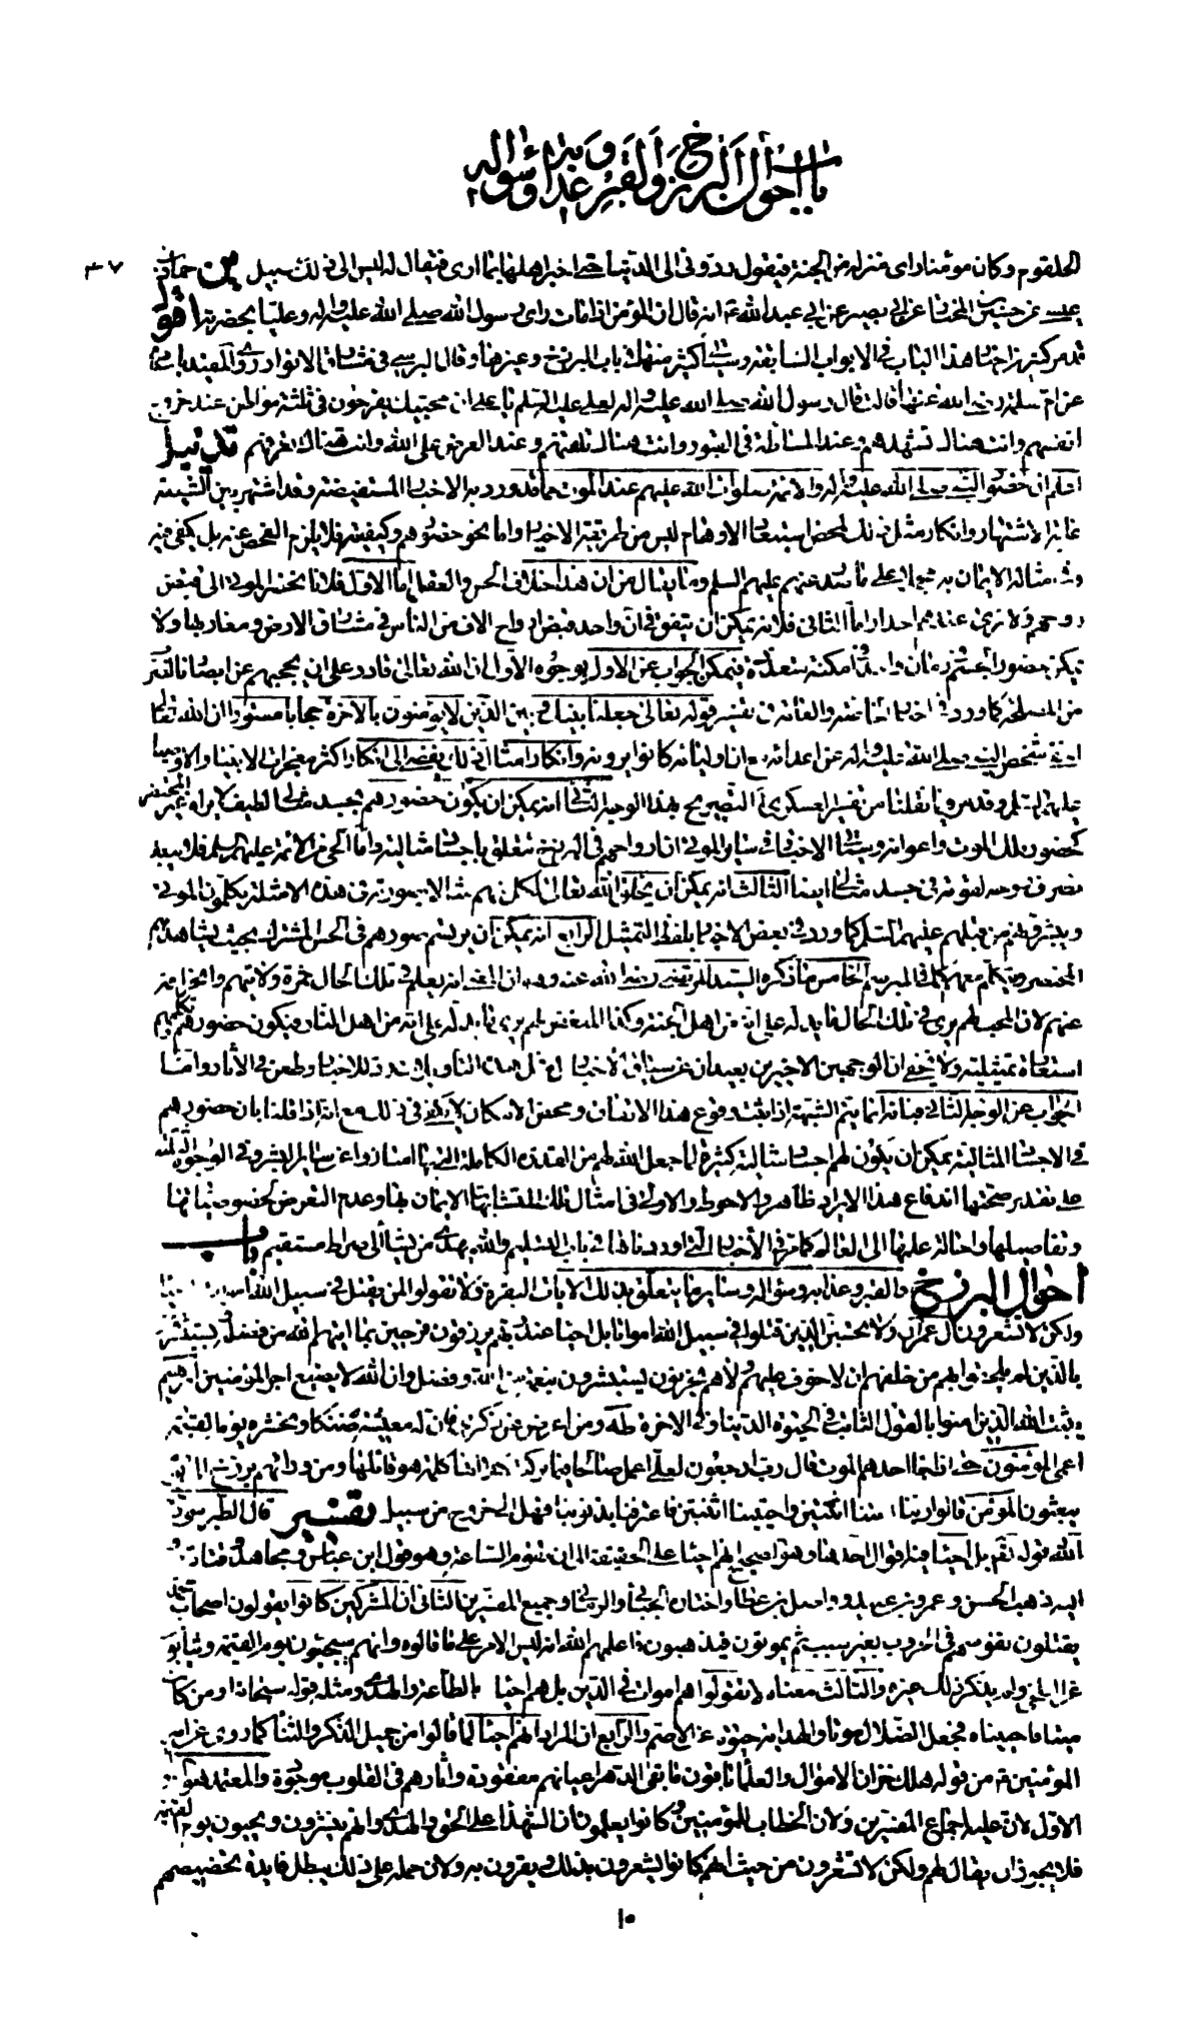 باب أحوال البرزخ والقبر وعذابه وسؤاله
٣٧
الحلقوم وكان مؤمنا راى منزله من الجنة فيقول ردونى الى الدنيا حتى اخبر اهلها بما ارى فيقال له ليس الى ذلك سبيل من حماد بن
عيسى عن حسين بن المختار عن ابى بصير عن ابى عبد الله ع انه قال ان المؤمن اذا مات راى رسول الله صلى الله عليه واله وعليا بحضرته اقول
قد مر كثير من اخبار هذا الباب فى الابواب السابقة وسياتى اكثر منها فى باب البرزخ وغيرها وقال البرسى فى مشارق الانوار روى المفيد باسناده
عن ام سلمة رضى الله عنها قالت قال رسول الله صلى الله عليه واله لعلى عليه السلم يا على ان محبيك يفرحون فى ثلثة مواطن عند خروج
انفسهم وانت هناك تشهدهم وعند المسائلة فى القبور وانت هناك تلقنهم وعند العرض على الله وانت هناك تعرفهم تذييل
اعلم ان حضور النبى صلى الله عليه واله والائمة صلوات الله عليهم عند الموت مما قد ورد به الاخبار المستفيضة وقد اشتهر بين الشيعة
غاية الاشتهار وانكار مثل ذلك لمحض استبعاد الاوهام ليس من طريقة الاخيار واما نحو حضورهم وكيفيته فلا يلزم الفحص عنه بل يكفى فيه
وفى امثاله الايمان به مجملا على ما صدر عنهم عليهم السلم وما يقال من ان هذا خلاف الحس والعقل اما الاول فلانا نحضر الموتى الى قبض
روحهم ولا نرى عندهم احدا واما الثانى فلانه يمكن ان يتفق فى آن واحد قبض ارواح الاف من الناس فى مشارق الارض ومغاربها ولا
يمكن حضور الجسم فى زمان واحد فى امكنة متعددة فيمكن الجواب عن الاول بوجوه الاول ان الله تعالى قادر على ان يحجبهم عن ابصارنا لضرب
من المصلحة كما ورد فى اخبار الخاصة والعامة فى تفسير قوله تعالى جعلنا بينك وبين الذين لا يؤمنون بالاخرة حجابا مستورا ان الله تعالى
اخفى شخص النبى صلى الله عليه واله عن اعدائه مع ان اوليائه كانوا يرونه وانكار امثال ذلك يفضى الى انكار اكثر معجزات الانبياء والاوصياء
عليهم السلم وقد مر فيما نقلنا من تفسير العسكرى ع التصريح بهذا الوجه الثانى انه يمكن ان يكون حضورهم بجسد مثالى لطيف لا يراه غير المحتضر
كحضور ملك الموت واعوانه وسياتى الاخبار فى سائر الموتى ان ارواحهم فى البرزخ تتعلق باجساد مثالية واما الحى من الائمة عليهم السلم فلا يبعد
تصرف روحه لقوته فى جسد مثالى ايضا الثالث انه يمكن ان يخلق الله تعالى لكل منهم مثالا بصورته وهذه الامثلة يكلمون الموتى
ويبشرونهم من قبلهم عليهم السلم كما ورد فى بعض الاخبار بلفظ التمثيل الرابع انه يمكن ان يرتسم صورهم فى الحس المشترك بحيث يشاهدهم
المحتضر ويتكلم معهم كما فى المبرسم الخامس ما ذكره السيد المرتضى رضى الله عنه وهو ان المعنى انه يعلم فى تلك الحال ثمرة ولايتهم وانحرافه
عنهم لان المحب لهم يرى فى تلك الحال ما يدله على انه من اهل الجنة وكذا المبغض لهم يرى ما يدله على انه من اهل النار فيكون حضورهم وتكلمهم
استعارة تمثيلية ولا يخفى ان الوجهين الاخيرين بعيدان عن سياق الاخبار بل مثل هذه التاويلات رد للاخبار وطعن فى الآثار واما
الجواب عن الوجه الثانى فبانه انما يتم الشبهة اذا ثبت وقوع هذا الاتفاق ومحض الامكان لا يكفى فى ذلك مع انه اذا قلنا بان حضورهم
فى الاجساد المثالية يمكن ان يكون لهم اجساد مثالية كثيرة لما جعل الله لهم من القدرة الكاملة التى بها امتازوا عن سائر البشر وفى الوجوه الثلثة
على تقدير صحتها اندفاع هذا الايراد ظاهر والاحوط والاولى فى امثال تلك المتشابهات الايمان بها وعدم التعرض لخصوصياتها
وتفاصيلها واحالة علمها الى العالم كما مر فى الاخبار التى اوردناها فى باب التسليم والله يهدى من يشاء الى صراط مستقيم باب
أحوال البرزخ والقبر وعذابه وسؤاله وسائر ما يتعلق بذلك الايات البقرة ولا تقولوا لمن يقتل فى سبيل الله اموات بل احياء
ولكن لا تشعرون ال عمران ولا تحسبن الذين قتلوا فى سبيل الله امواتا بل احياء عند ربهم يرزقون فرحين بما اتيهم الله من فضله ويستبشرون
بالذين لم يلحقوا بهم من خلفهم ان لا خوف عليهم ولا هم يحزنون يستبشرون بنعمة من الله وفضل وان الله لا يضيع اجر المؤمنين ابرهيم
يثبت الله الذين امنوا بالقول الثابت فى الحيوة الدنيا وفى الاخرة طه ومن اعرض عن ذكرى فان له معيشة ضنكا ونحشره يوم القيمة
اعمى المؤمنون حتى اذا جاء احدهم الموت قال رب ارجعون لعلى اعمل صالحا فيما تركت كلا انها كلمة هو قائلها ومن ورائهم برزخ الى يوم
يبعثون المؤمن قالوا ربنا امتنا اثنتين واحييتنا اثنتين فاعترفنا بذنوبنا فهل الى خروج من سبيل تفسير قال الطبرسى ره
الله قوله تعالى بل احياء فيه اقوال احدها وهو الصحيح انهم احياء على الحقيقة الى ان تقوم الساعة وهو قول ابن عباس ومجاهد وقتادة و
اليه ذهب الحسن وعمرو بن عبيد وواصل بن عطا واختاره الجبائى والرمانى وجميع المفسرين الثانى ان المشركين كانوا يقولون اصحاب محمد
يقتلون نفوسهم فى الحروب بغير سبب ثم يموتون فيذهبون فاعلمهم الله انه ليس الامر على ما قالوه وانهم سيحيون يوم القيمة ويثابون
عن البلخى ولم يذكر ذلك غيره والثالث معناه لا تقولوا هم اموات فى الدين بل هم احياء بالطاعة والهدى ومثله قوله سبحانه او من كان
ميتا فاحييناه فجعل الضلال موتا والهداية حيوة عن الاصم والرابع ان المراد انهم احياء لما قالوا من جميل الذكر والثناء كما روى عن امير
المؤمنين ع من قوله هلك خزان الاموال والعلماء باقون ما بقى الدهر اعيانهم مفقودة واثارهم فى القلوب موجودة والمعتمد هو القول
الاول لان عليه اجماع المفسرين ولان الخطاب للمؤمنين وكانوا يعلمون ان الشهداء على الحق والهدى وانهم ينشرون ويحيون يوم القيمة
فلا يجوز ان يقال لهم ولكن لا تشعرون من حيث انهم كانوا يشعرون بذلك ويقرون به ولان حمله على ذلك يبطل فايدة تخصيصهم
١٠